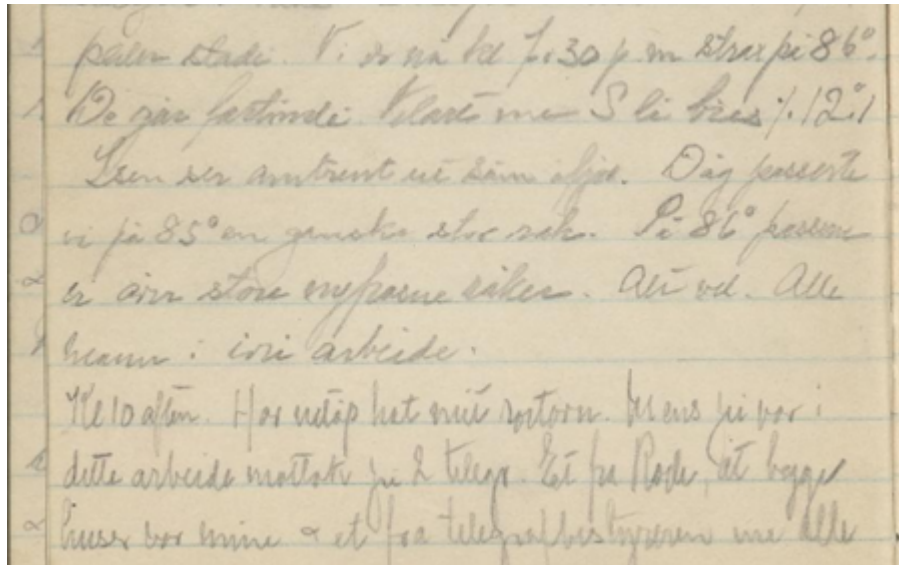 stadi. Vi er nå kl 7.30 p m strax på 86°.
De går fortinde. me S li bris ÷ 12°.
Isen ser omtrent ut som ifjor. Idag passerte
vi på 85° en ganske stor råk. På 86° passerer
vi over store nyfrosne råker. Alt vel. Alle
i ivri arbeide.
Kl 10 aften. Har netop hat mit rortorn. Mens jei var i
dette arbeide mottok jei 2 telegr. Et fra Rode, at bygge
huser bor mine & et fra telegrafbestyreren me alle